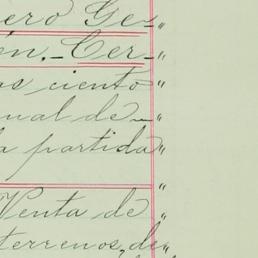 ero Ge- "
én.- Cer- "
os ciento "
nual de - "
a partida "
"
Venta de "
terrenos, de "